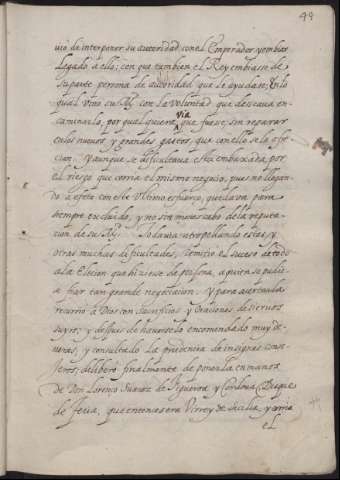 49
uio de interponer su autoridad con el Emperador, y embiar
legado a ello; con que tambien el Rey embiasse de
su parte persona de autoridad que le ayudase; En lo
qual vino su Mg.d con la voluntad que deseaua en-
caminarla, por qual quiera via que fuese, sin reparar
en los nueuos y grandes gastos, que con ello se le ofre
cian. Y aunque se dificultaua esta embaxada por
el riesgo que corria el mismo negocio, pues no llegan-
do a efeto con este vltimo esfuerço, quedaua para
siempre excluido, y no sin menoscabo de la reputa-
cion de su Mg.d. Todauia atropellando estas, y
otras muchas dificultades, remitio el suceso de todo
a la Elecion que hiziese de persona, a quien se pudie-
se fiar tan grande negociacion; y para acertarla
recurrio a Dios con sacrificios y oraciones de sieruos
suyos; y despues de hauerselo encomendado muy de
ueras, y consultado la prudencia de insignes conse-
jeros; deliberó finalmente de ponerla en manos
de Don Lorenço Suarez de Figueroa y Cordoua Duque
de Feria, que entonces era Virrey de Sicilia, y auia
el